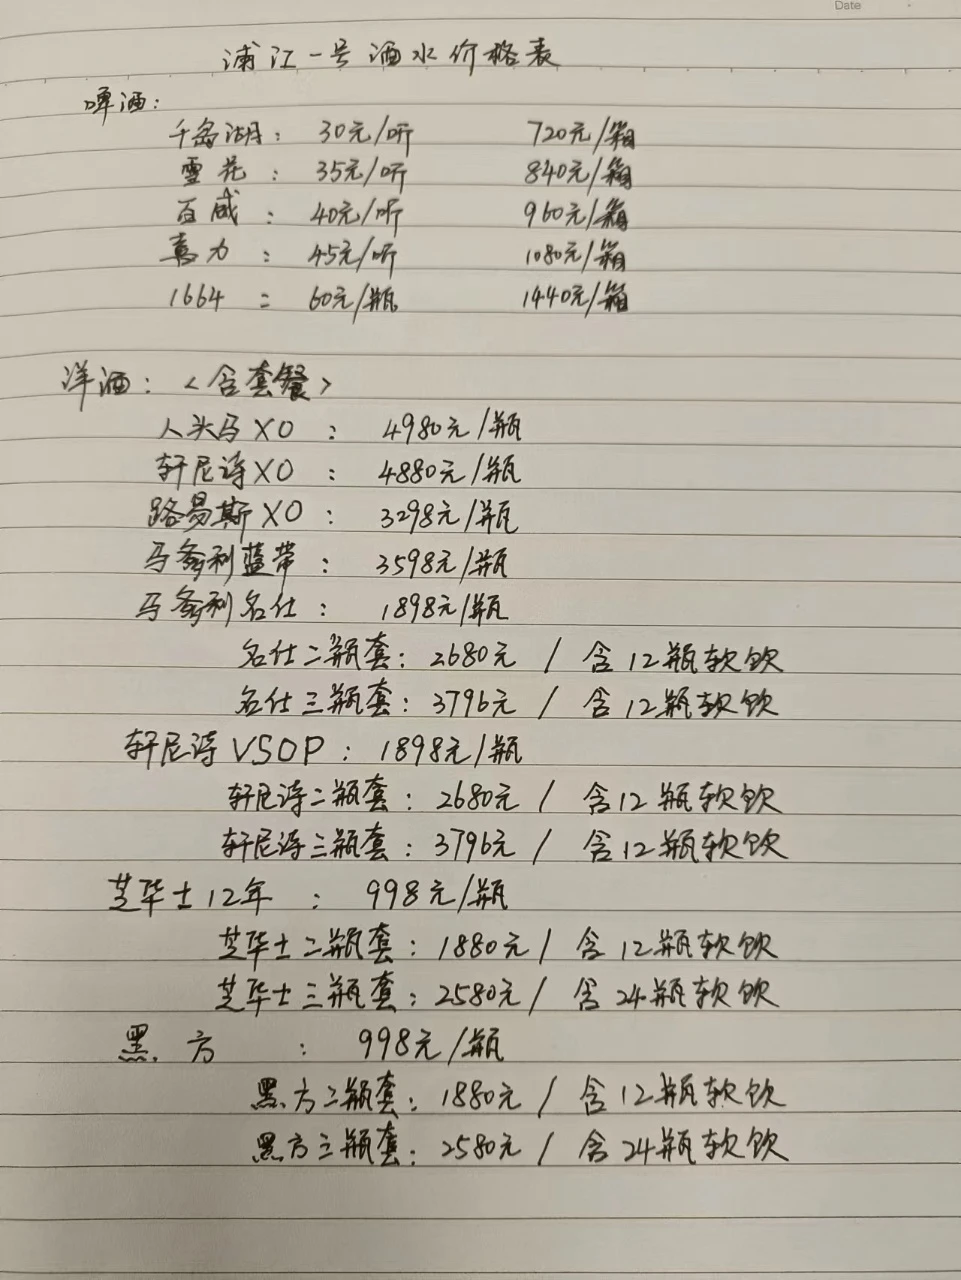 Date
浦江一号酒水价格表
啤酒:
千岛湖: 30元/听 720元/箱
雪花: 35元/听 840元/箱
百威: 40元/听 960元/箱
喜力: 45元/听 1080元/箱
1664: 60元/瓶 1440元/箱
洋酒: <含套餐>
人头马XO: 4980元/瓶
轩尼诗XO: 4880元/瓶
路易斯XO: 3298元/瓶
马爹利蓝带: 3598元/瓶
马爹利名仕: 1898元/瓶
名仕二瓶套: 2680元 / 含12瓶软饮
名仕三瓶套: 3796元 / 含12瓶软饮
轩尼诗VSOP: 1898元/瓶
轩尼诗二瓶套: 2680元 / 含12瓶软饮
轩尼诗三瓶套: 3796元 / 含12瓶软饮
芝华士12年: 998元/瓶
芝华士二瓶套: 1880元 / 含12瓶软饮
芝华士三瓶套: 2580元 / 含24瓶软饮
黑方: 998元/瓶
黑方二瓶套: 1880元 / 含12瓶软饮
黑方三瓶套: 2580元 / 含24瓶软饮